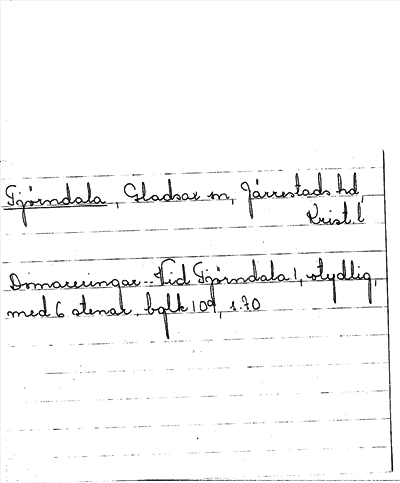 Tjörndala, Gladsax sn, Järrestads hd,
Krist. l
Domareringar. Vid Tjörndala 1, otydlig,
med 6 stenar, s. 70